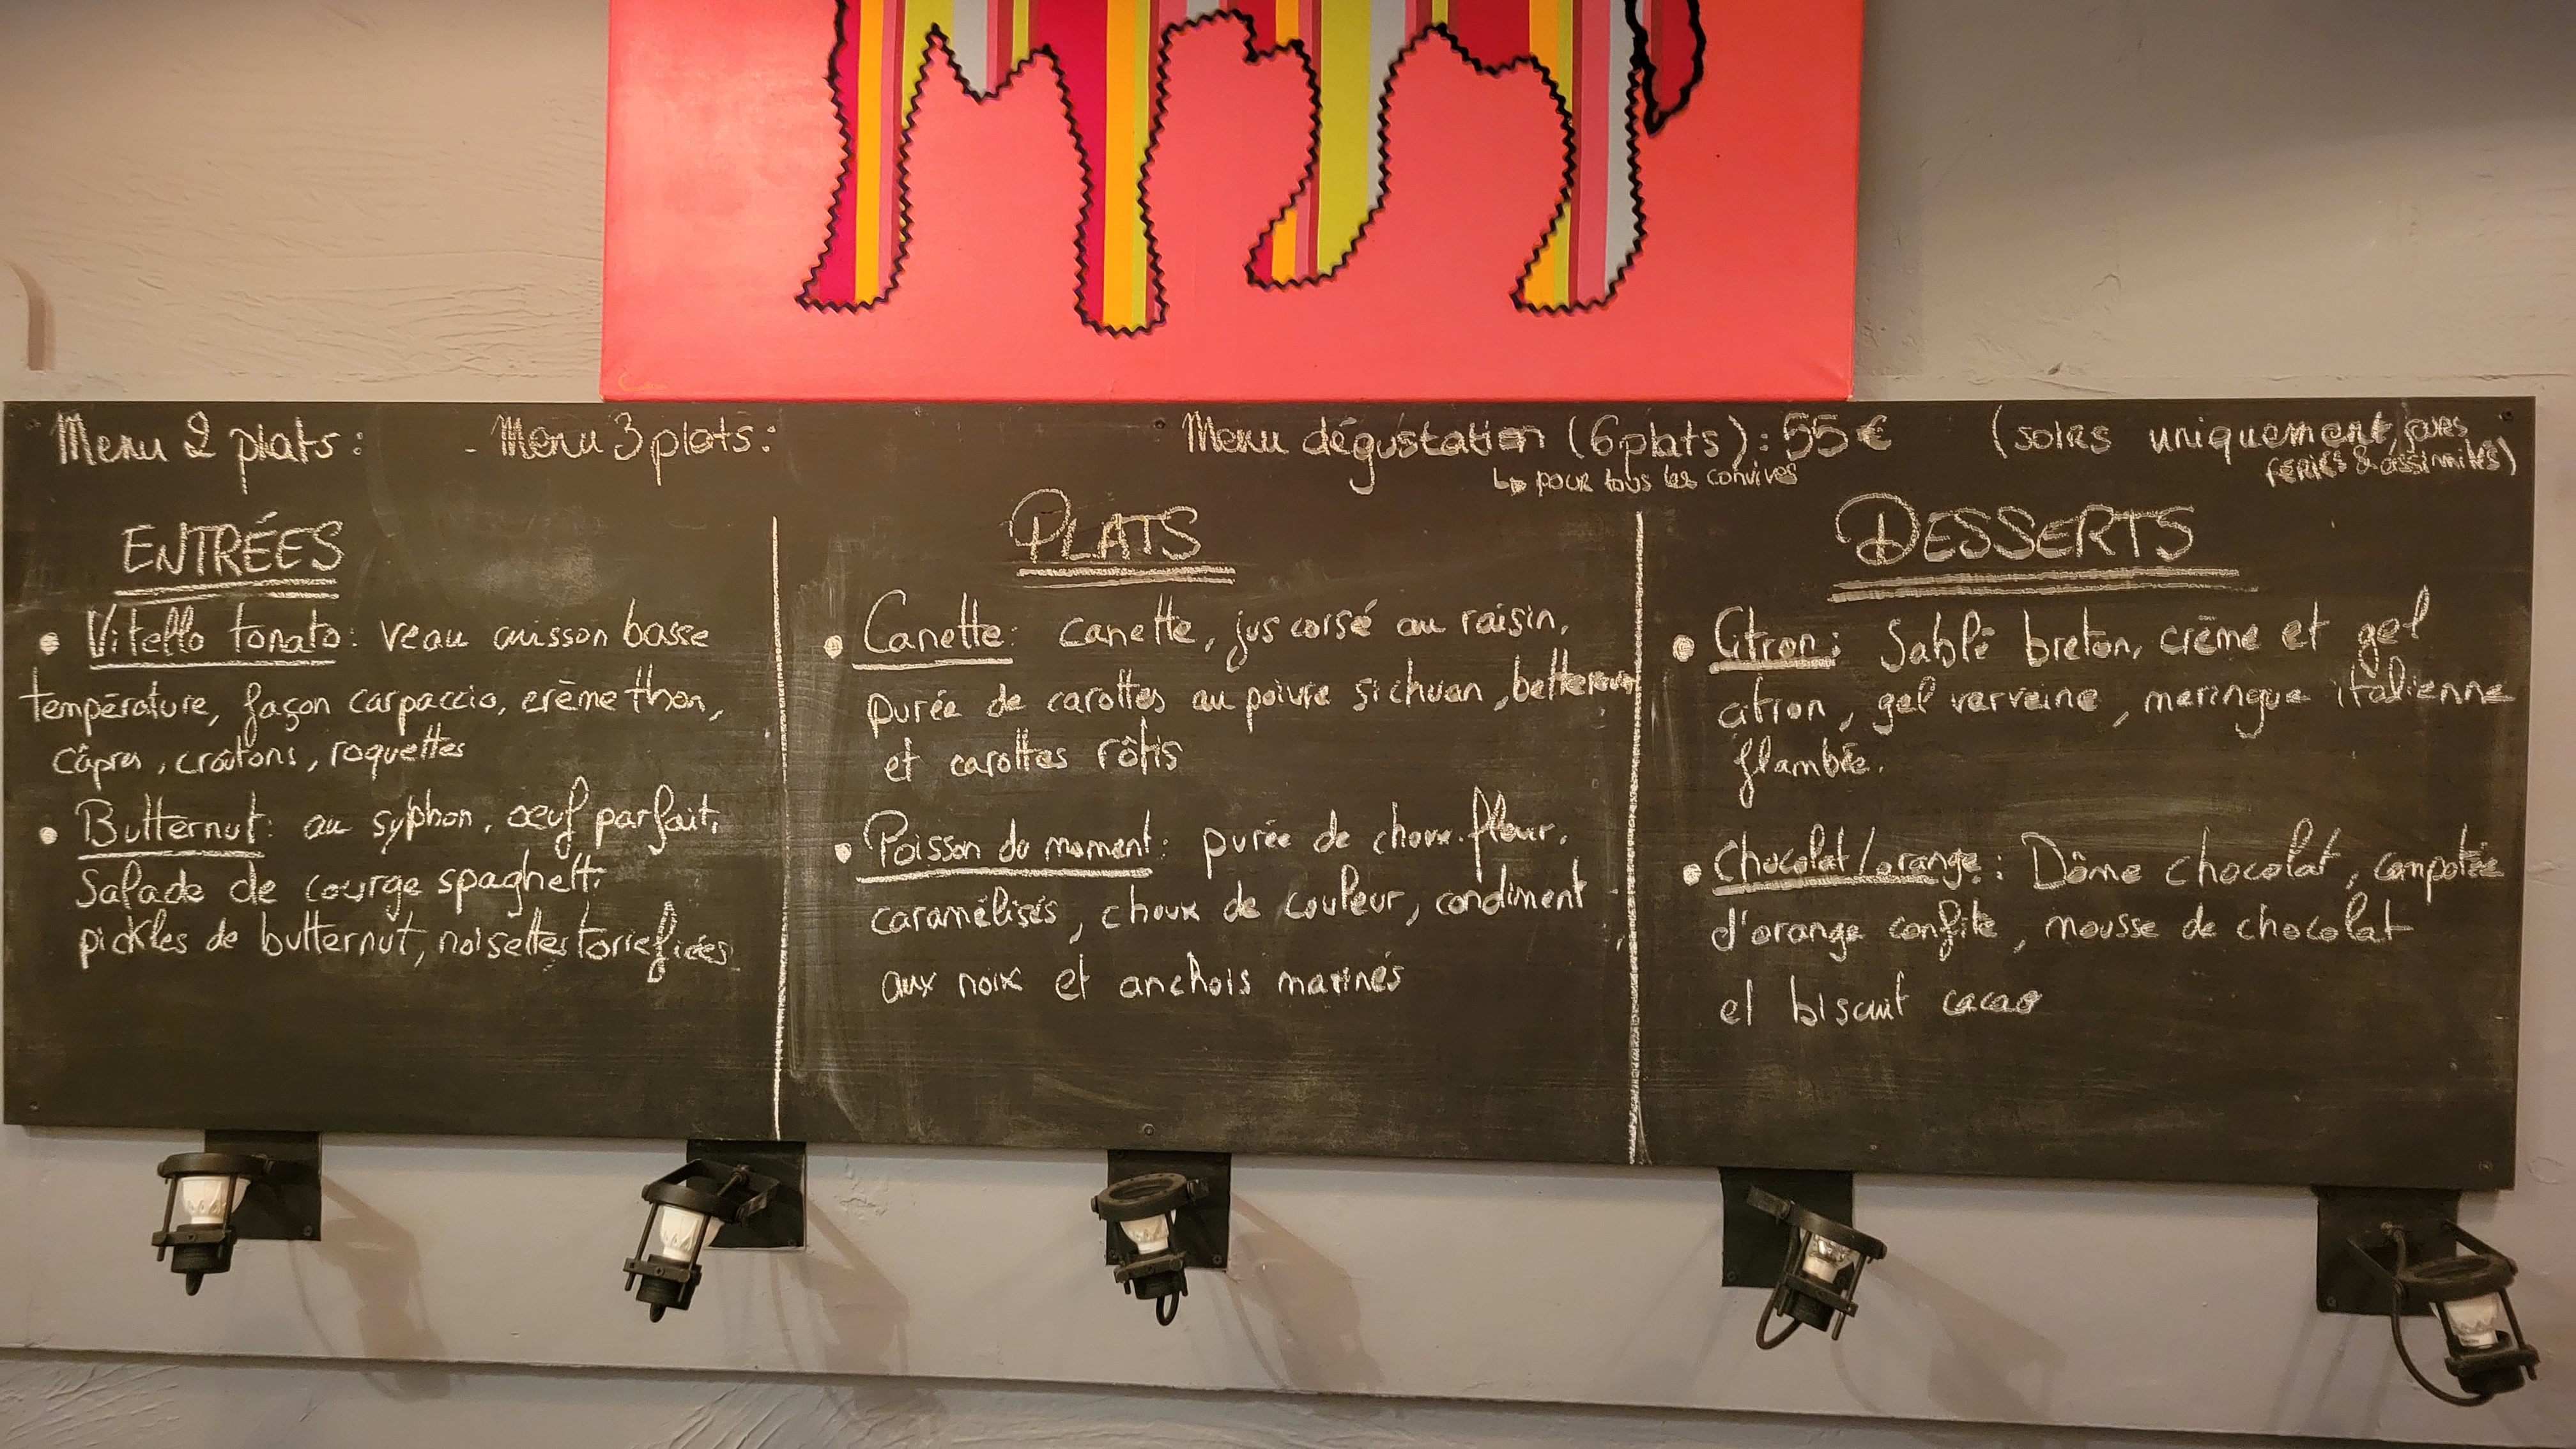 Menu 2 plats :
- Menu 3 plats :
Menu dégustation (6 plats) : 55 €
↳ pour tous les convives
(soirs uniquement, jours
fériés & assimilés)
ENTRÉES
• Vitello tonato : veau cuisson basse
température, façon carpaccio, crème thon,
câpres, croûtons, roquettes
• Butternut : au syphon, œuf parfait,
Salade de courge spaghetti
pickles de butternut, noisettes torrefiées
PLATS
• Canette : canette, jus corsé au raisin,
purée de carottes au poivre sichuan, betteraves
et carottes rôtis
• Poisson du moment : purée de choux-fleur,
caramélisés, choux de couleur, condiment
aux noix et anchois marinés
DESSERTS
• Citron : Sablé breton, crème et gel
citron, gel verveine, meringue italienne
flambée.
• Chocolat/orange : Dôme chocolat, compotée
d'orange confite, mousse de chocolat
et biscuit cacao